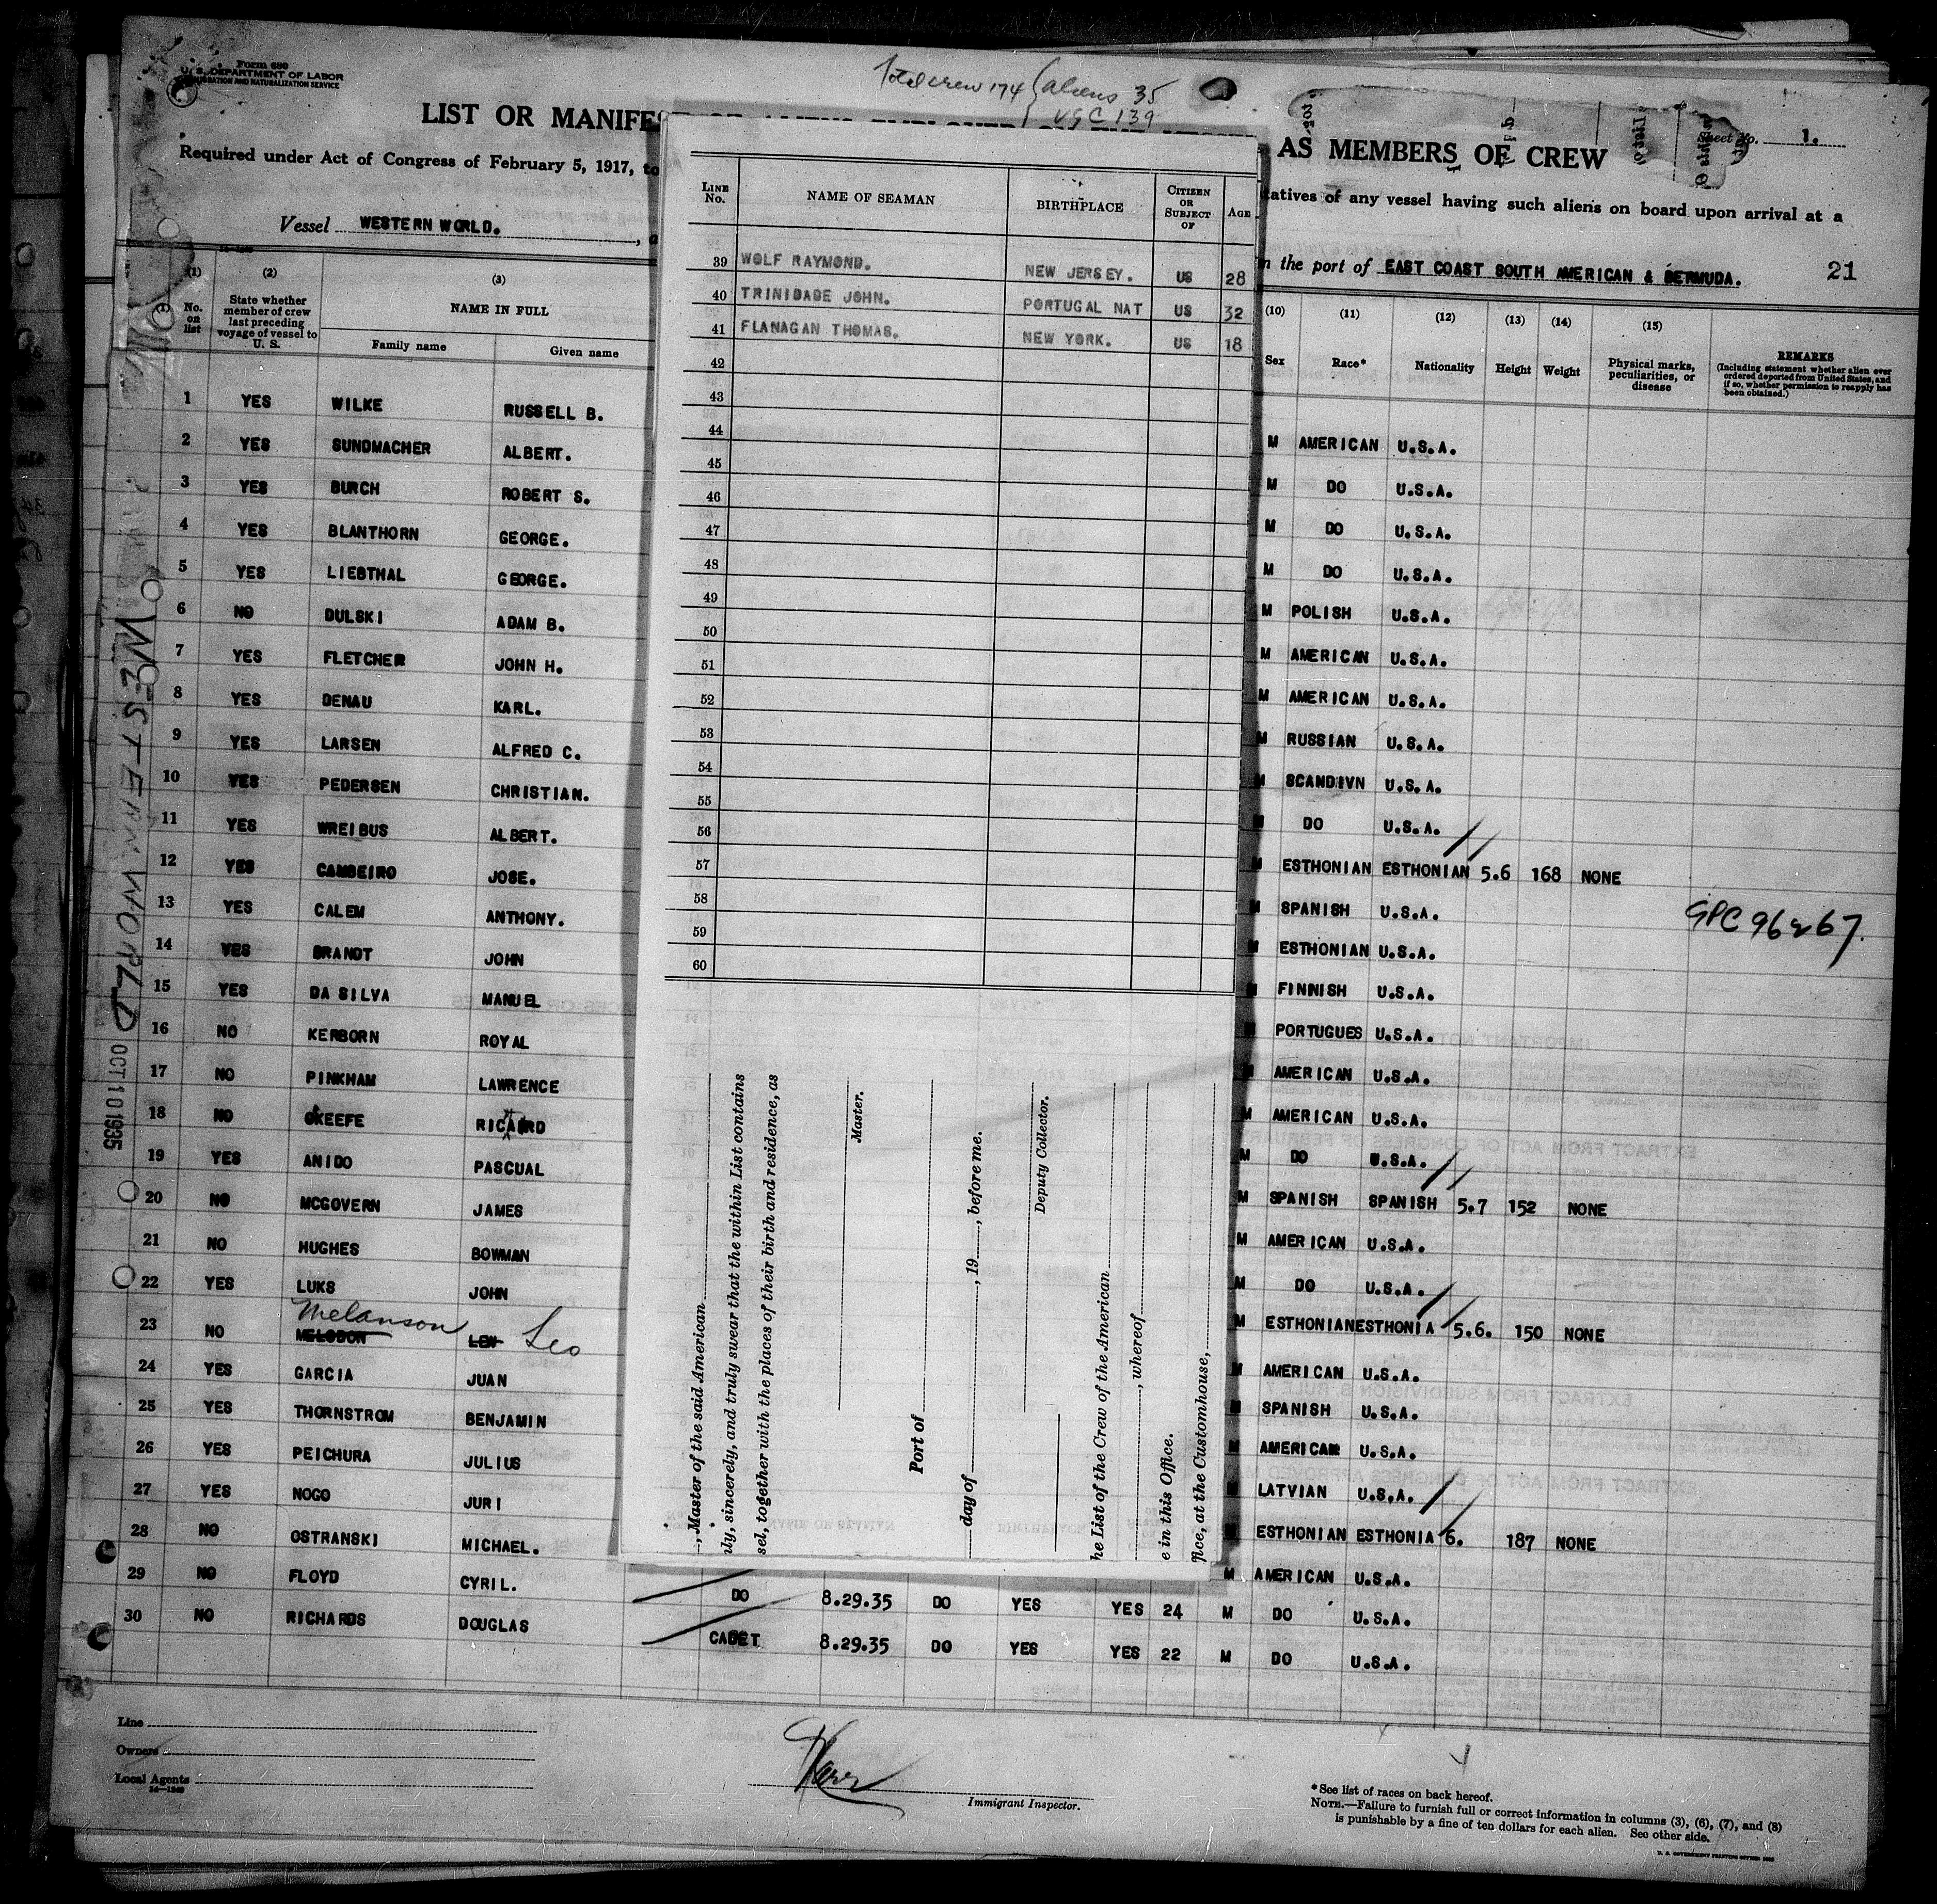 Form 680
U. S. DEPARTMENT OF LABOR
IMMIGRATION AND NATURALIZATION SERVICE
Total crew 174 aliens 35
USC 139
LIST OR MANIFES
AS MEMBERS OF CREW
Sheet No. 1.
Required under Act of Congress of February 5, 1917, to
tatives of any vessel having such aliens on board upon arrival at a
Vessel WESTERN WORLD.
n the port of EAST COAST SOUTH AMERICAN & BERMUDA. 21
(1) (2) (3)
No. on list
State whether member of crew last preceding voyage of vessel to U. S.
NAME IN FULL
Family name Given name
1 YES WILKE RUSSELL B.
2 YES SUNDMACHER ALBERT.
3 YES BURCH ROBERT S.
4 YES BLANTHORN GEORGE.
5 YES LIEBTHAL GEORGE.
6 NO DULSKI ADAM B.
7 YES FLETCHER JOHN H.
8 YES DENAU KARL.
9 YES LARSEN ALFRED C.
10 YES PEDERSEN CHRISTIAN.
11 YES WREIBUS ALBERT.
12 YES CAMBEIRO JOSE.
13 YES CALEM ANTHONY.
14 YES BRANDT JOHN
15 YES DA SILVA MANUEL
16 NO KERBORN ROYAL
17 NO PINKHAM LAWRENCE
18 NO OKEEFE RICARD
19 YES ANIDO PASCUAL
20 NO MCGOVERN JAMES
21 NO HUGHES BOWMAN
22 YES LUKS JOHN
Melanson Leo
23 NO MELODON LEN
24 YES GARCIA JUAN
25 YES THORNSTROM BENJAMIN
26 YES PEICHURA JULIUS
27 YES NOGO JURI
28 NO OSTRANSKI MICHAEL.
29 NO FLOYD CYRIL.
30 NO RICHARDS DOUGLAS
WESTERN WORLD OCT 10 1935
LINE No. NAME OF SEAMAN BIRTHPLACE CITIZEN OR SUBJECT OF AGE
39 WOLF RAYMOND. NEW JERSEY. US 28
40 TRINIDADE JOHN. PORTUGAL NAT US 32
41 FLANAGAN THOMAS. NEW YORK. US 18
42
43
44
45
46
47
48
49
50
51
52
53
54
55
56
57
58
59
60
, Master of the said American
ly, sincerely, and truly swear that the within List contains
sel, together with the places of their birth and residence, as
Master.
Port of
day of , 19 , before me.
Deputy Collector.
he List of the Crew of the American
, whereof
e in this Office.
fice, at the Customhouse,
(10) (11) (12) (13) (14) (15)
Sex Race* Nationality Height Weight Physical marks, peculiarities, or disease
REMARKS
(Including statement whether alien ever ordered deported from United States, and if so, whether permission to reapply has been obtained.)
M AMERICAN U.S.A.
M DO U.S.A.
M DO U.S.A.
M DO U.S.A.
M POLISH U.S.A.
M AMERICAN U.S.A.
M AMERICAN U.S.A.
M RUSSIAN U.S.A.
M SCANDIVN U.S.A.
M DO U.S.A.
M ESTHONIAN ESTHONIAN 5.6 168 NONE
M SPANISH U.S.A. GPC 96267.
M ESTHONIAN U.S.A.
M FINNISH U.S.A.
M PORTUGUES U.S.A.
M AMERICAN U.S.A.
M AMERICAN U.S.A.
M DO U.S.A.
M SPANISH SPANISH 5.7 152 NONE
M AMERICAN U.S.A.
M DO U.S.A.
M ESTHONIAN ESTHONIA 5.6. 150 NONE
M AMERICAN U.S.A.
M SPANISH U.S.A.
M AMERICAN U.S.A.
M LATVIAN U.S.A.
M ESTHONIAN ESTHONIA 6. 187 NONE
M AMERICAN U.S.A.
DO 8.29.35 DO YES YES 24 M DO U.S.A.
CADET 8.29.35 DO YES YES 22 M DO U.S.A.
Line
Owners
Local Agents
14—1240
Immigrant Inspector.
*See list of races on back hereof.
NOTE.—Failure to furnish full or correct information in columns (3), (6), (7), and (8)
is punishable by a fine of ten dollars for each alien. See other side.